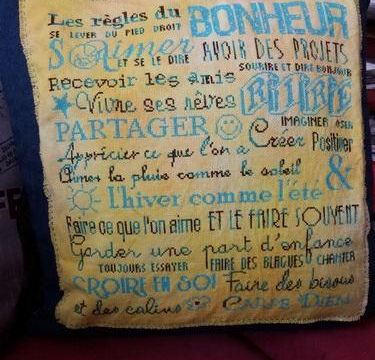 Les règles du BONHEUR
SE LEVER DU PIED DROIT
S'aimer ET SE LE DIRE AVOIR DES PROJETS
SOURIRE ET DIRE BONJOUR
Recevoir les amis
Vivre ses rêves
IMAGINER OSER
PARTAGER Créer Positiver
Apprécier ce que l'on a
Aimer la pluie comme le soleil &
L'hiver comme l'été
Faire ce que l'on aime ET LE FAIRE SOUVENT
Garder une part d'enfance
TOUJOURS ESSAYER FAIRE DES BLAGUES CHANTER
CROIRE EN SOI Faire des bisous
et des calins CARPE DIEM